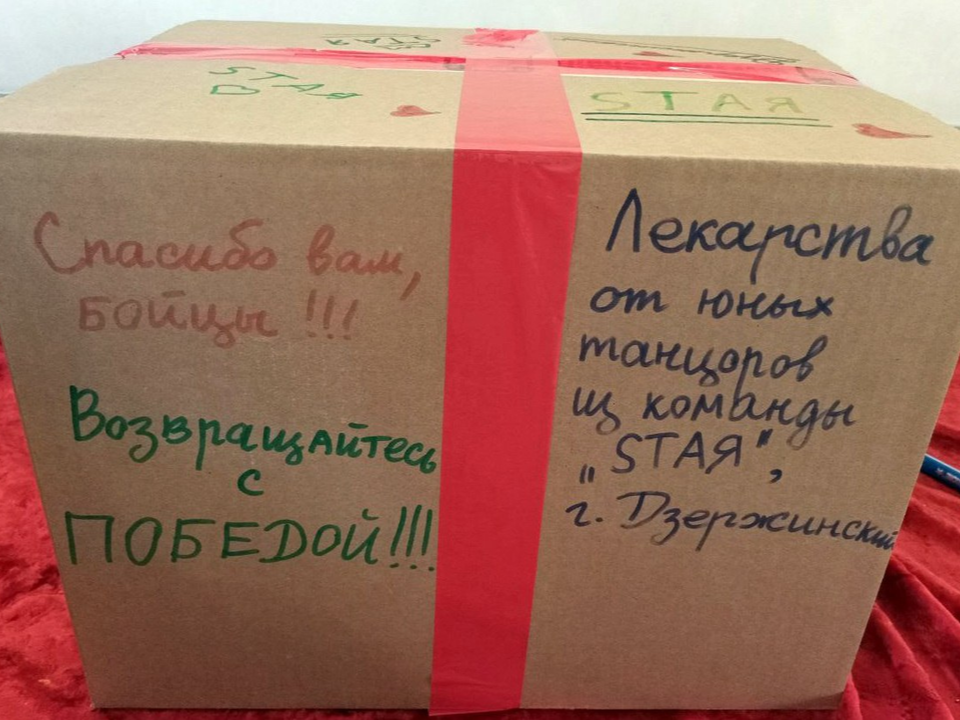 STAЯ
STAЯ
STAЯ
Спасибо вам,
БОЙЦЫ !!!
Возвращайтесь
с
ПОБЕДОЙ!!!
Лекарства
от юных
танцоров
из команды
„STAЯ",
г. Дзержинский